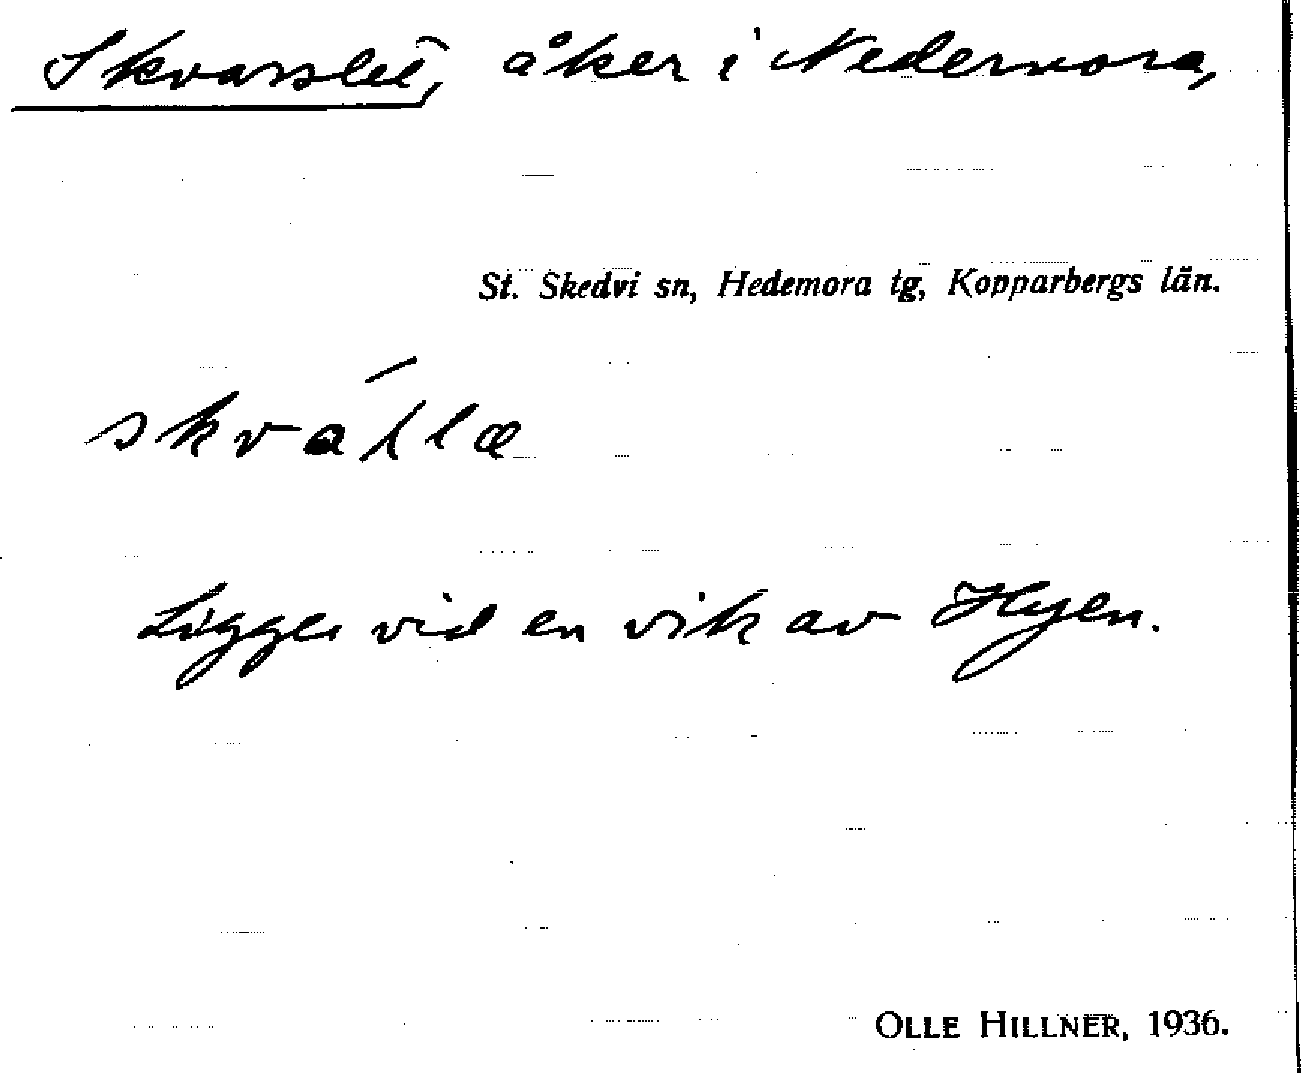 Skvarslet, åker i Nedernora,
St. Skedvi sn, Hedemora tg, Kopparbergs län.
Ligger vid en vik av Hyen.
OLLE HILLNER, 1936.